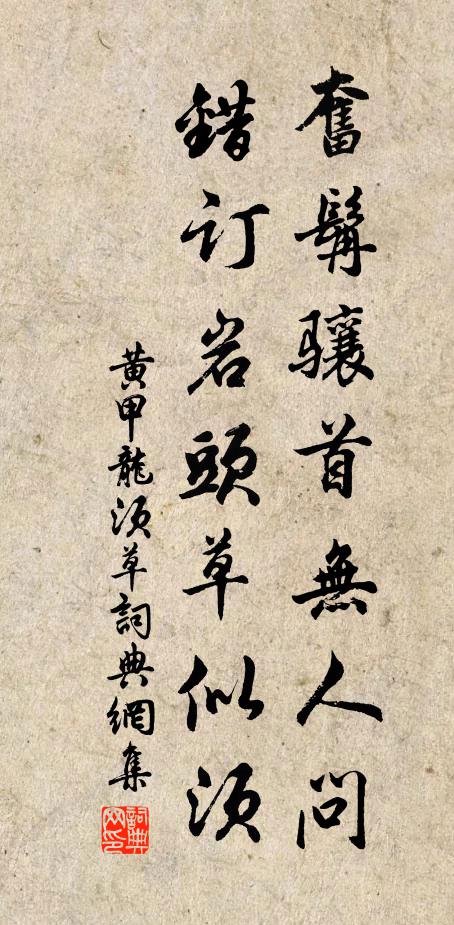 奮髯驤首無人問
錯订岩頭草似须
黃甲龍须草詞典網集
詞典網印